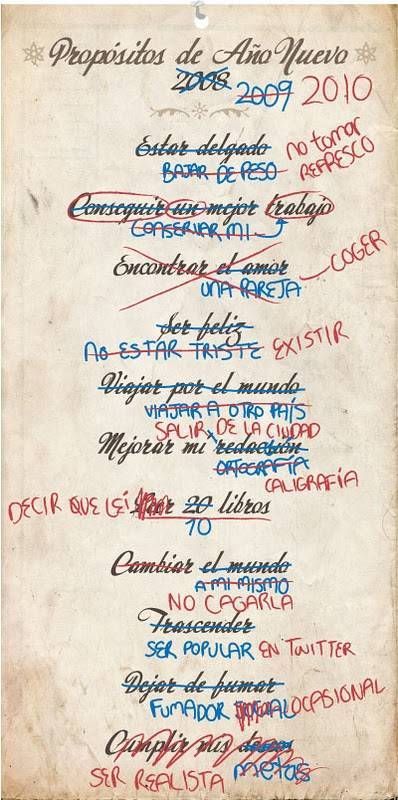 Propósitos de Año Nuevo
2008 2009 2010
Estar delgado no tomar
BAJAR DE PESO REFRESCO
Conseguir un mejor trabajo
CONSERVAR MI
Encontrar el amor COGER
UNA PAREJA
Ser feliz
NO ESTAR TRISTE EXISTIR
Viajar por el mundo
VIAJAR A OTRO PAÍS
SALIR DE LA CIUDAD
Mejorar mi redacción
ORTOGRAFÍA
CALIGRAFÍA
DECIR QUE LEÍ Leer 20 libros
10
Cambiar el mundo
A MI MISMO
NO CAGARLA
Trascender
SER POPULAR EN TWITTER
Dejar de fumar
FUMADOR SOCIAL OCASIONAL
Cumplir mis deseos
SER REALISTA METAS